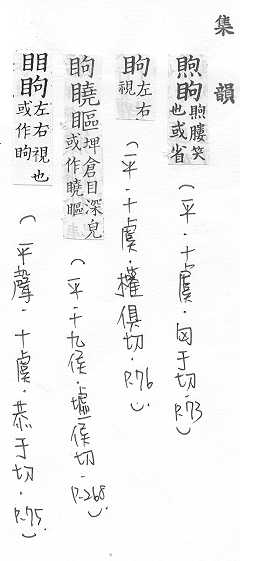 集韻
煦眗 煦䁱笑也或省
(平·十虞·匈于切·P.73)
眗 左右視
(平·十虞·權俱切·P.76)
眗𥌒瞘 埤倉目深皃或作𥌒瞘
(平·十九侯·墟侯切·P.268)
䀠眗 左右視也或作眗
(平聲·十虞·恭于切·P.75)